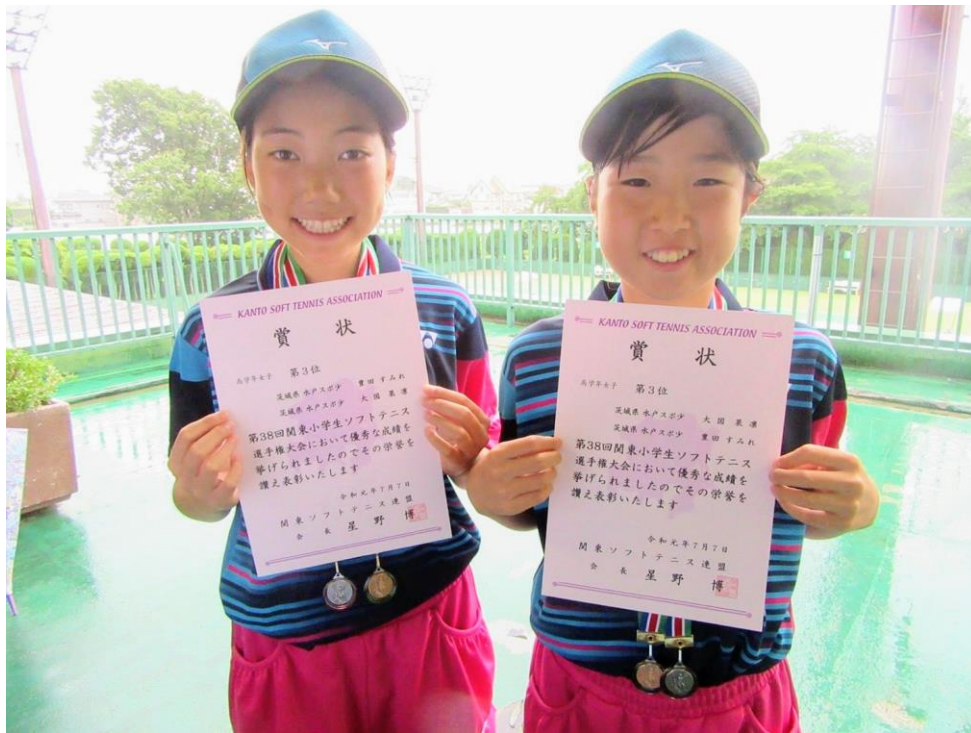 KANTO SOFT TENNIS ASSOCIATION
賞状
高学年女子 第3位
茨城県 水戸スポ少 豊田 すみれ
茨城県 水戸スポ少 大国 果凛
第38回関東小学生ソフトテニス
選手権大会において優秀な成績を
挙げられましたのでその栄誉を
讃え表彰いたします
令和元年7月7日
関東ソフトテニス連盟
会長 星野 博
KANTO SOFT TENNIS ASSOCIATION
賞状
高学年女子 第3位
茨城県 水戸スポ少 大国 果凛
茨城県 水戸スポ少 豊田 すみれ
第38回関東小学生ソフトテニス
選手権大会において優秀な成績を
挙げられましたのでその栄誉を
讃え表彰いたします
令和元年7月7日
関東ソフトテニス連盟
会長 星野 博